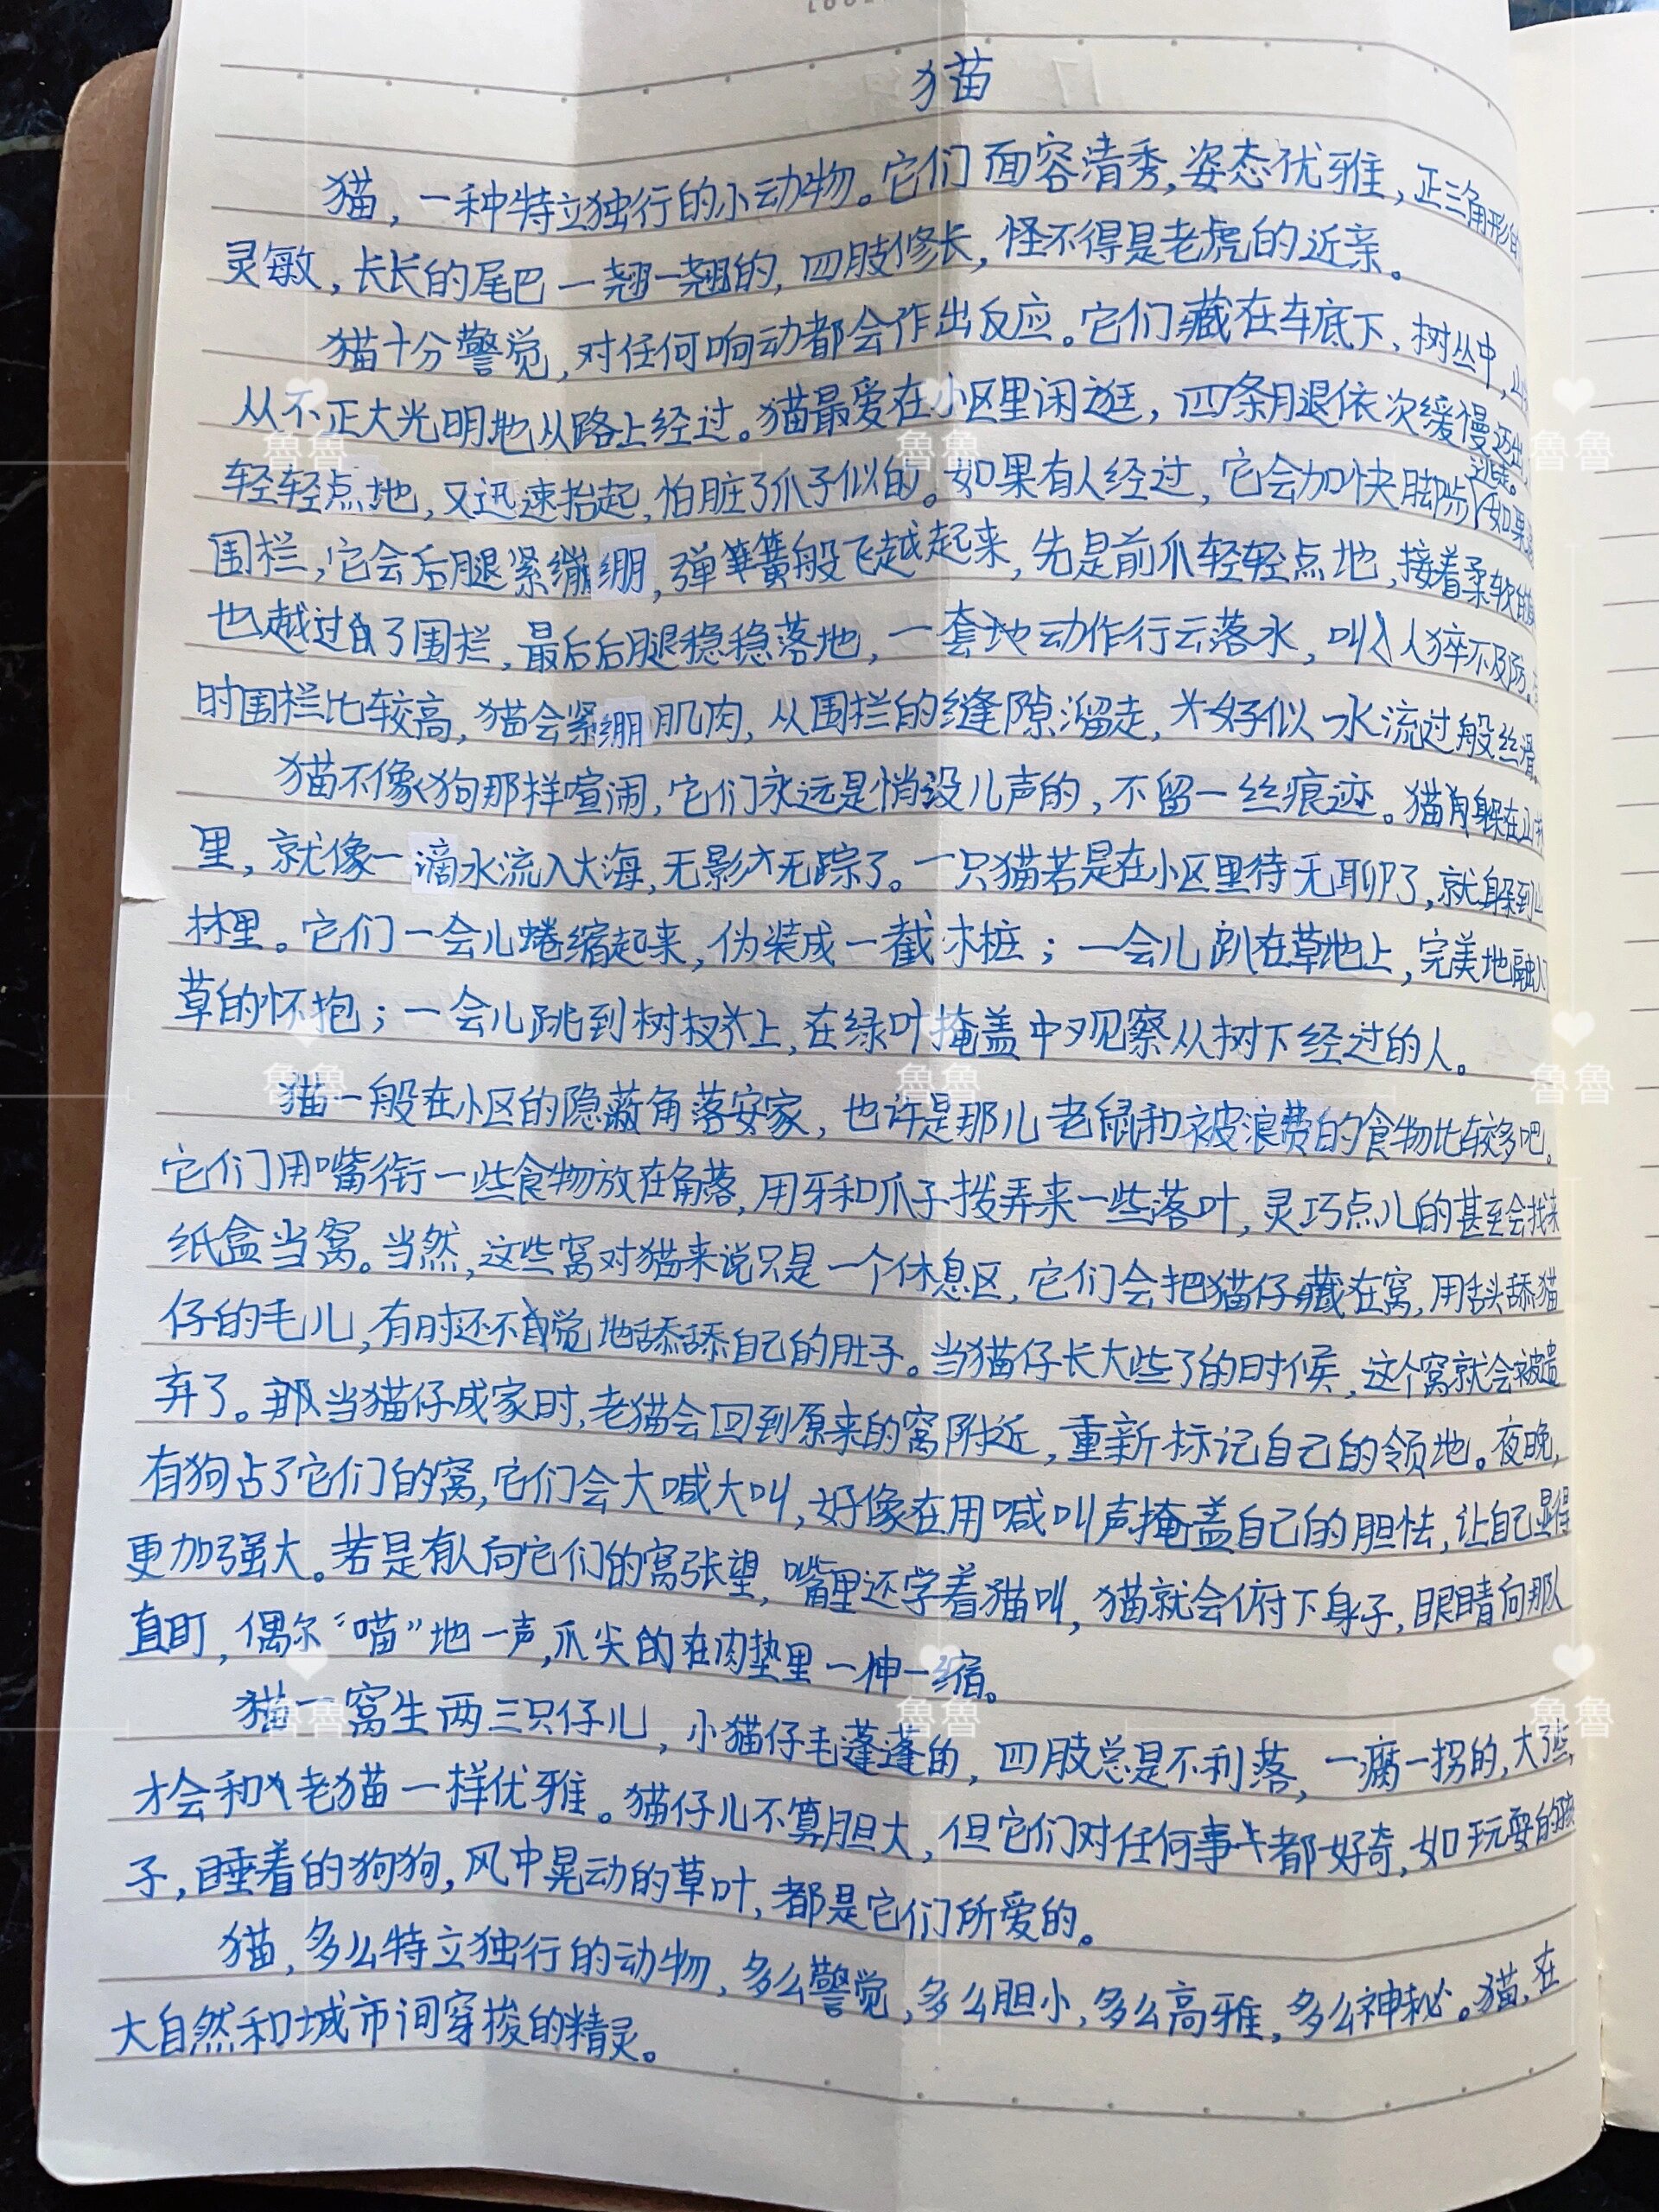 猫
猫，一种特立独行的小动物。它们面容清秀，姿态优雅，正三角形
灵敏，长长的尾巴一翘一翘的，四肢修长，怪不得是老虎的近亲。
猫十分警觉，对任何响动都会作出反应。它们藏在车底下，树丛中，
从不正大光明地从路上经过。猫最爱在小区里闲逛，四条腿依次缓慢迈出，
轻轻点地，又迅速抬起，怕脏了爪子似的。如果有人经过，它会加快脚步逃走。如果
围栏，它会后腿紧绷绷，弹簧般飞越起来，先是前爪轻轻点地，接着柔软的
也越过了围栏，最后后腿稳稳落地，一套动作行云落水，叫人猝不及防。
时围栏比较高，猫会紧绷肌肉，从围栏的缝隙溜走，好似水流过般丝滑。
猫不像狗那样喧闹，它们永远是悄没儿声的，不留一丝痕迹。猫躲在山林
里，就像一滴水流入大海，无影无踪了。一只猫若是在小区里待无聊了，就躲到山
林里。它们一会儿蜷缩起来，伪装成一截木桩；一会儿趴在草地上，完美地融入了
草的怀抱；一会儿跳到树杈上，在绿叶掩盖中观察从树下经过的人。
猫一般在小区的隐蔽角落安家，也许是那儿老鼠和被浪费的食物比较多吧。
它们用嘴衔一些食物放在角落，用牙和爪子拨弄来一些落叶，灵巧点儿的甚至会找来
纸盒当窝。当然，这些窝对猫来说只是一个休息区，它们会把猫仔藏在窝，用舌头舔猫
仔的毛儿，有时还不自觉地舔舔自己的肚子。当猫仔长大些了的时候，这个窝就会被遗
弃了。那当猫仔成家时，老猫会回到原来的窝附近，重新标记自己的领地。夜晚，
有狗占了它们的窝，它们会大喊大叫，好像在用喊叫声掩盖自己的胆怯，让自己显得
更加强大。若是有人向它们的窝张望，嘴里还学着猫叫，猫就会俯下身子，眼睛向那人
直盯，偶尔“喵”地一声，爪尖的在肉垫里一伸一缩。
猫一窝生两三只仔儿，小猫仔毛蓬蓬的，四肢总是不利落，一瘸一拐的，大了些
才会和老猫一样优雅。猫仔儿不算胆大，但它们对任何事都好奇，如玩耍的孩
子，睡着的狗狗，风中晃动的草叶，都是它们所爱的。
猫，多么特立独行的动物，多么警觉，多么胆小，多么高雅，多么神秘。猫，在
大自然和城市间穿梭的精灵。
魯魯
魯魯
魯魯
魯魯
魯魯
魯魯
魯魯
魯魯
魯魯